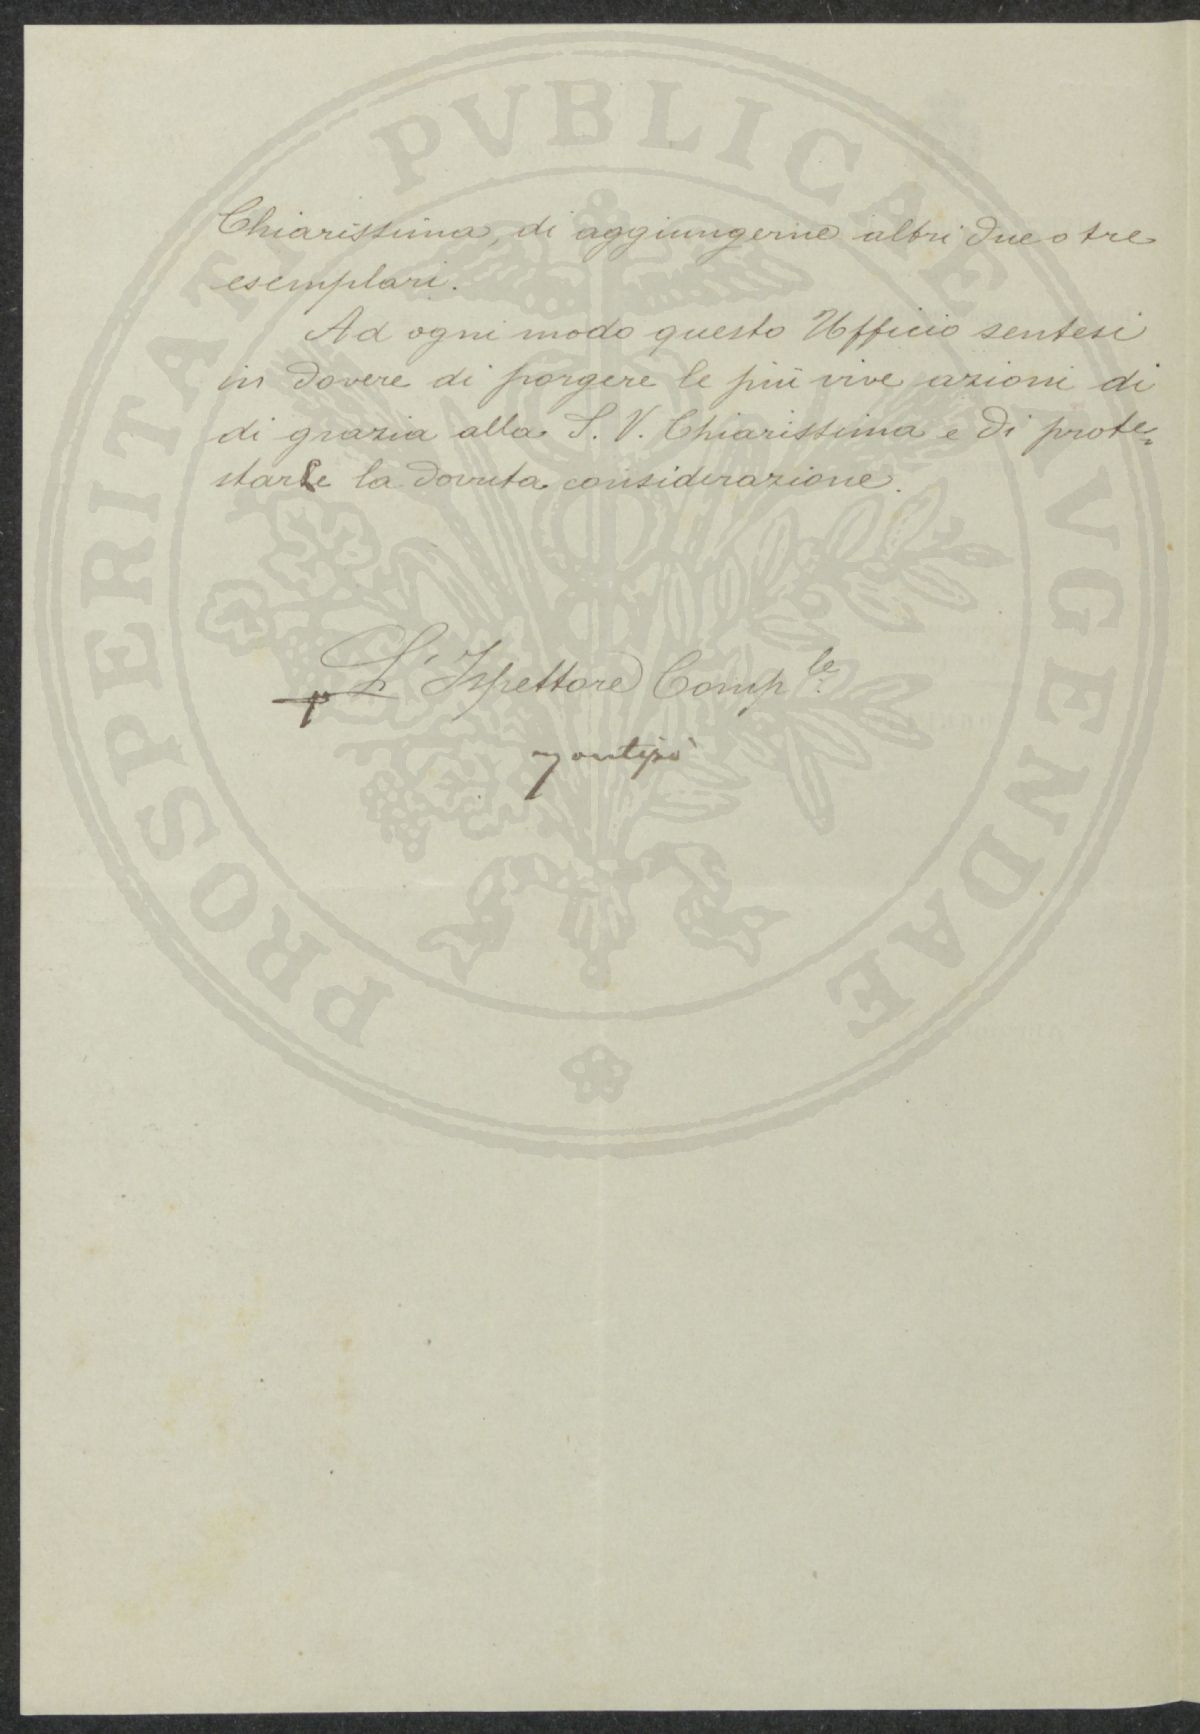 Chiarissima, di aggiungerne altri due o tre
esemplari.
Ad ogni modo questo Ufficio sentesi
in dovere di porgere le più vive azioni di
di grazia alla S. V. Chiarissima e di prote=
starle la dovuta considerazione.
p L'Ispettore Comp.le
PROSPERITATI PVBLICAE AVGENDAE